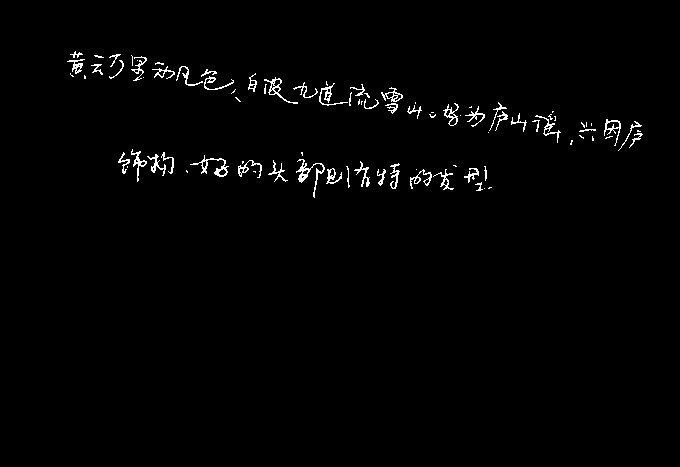 黄云万里动风色、白波九道流雪山。好为庐山谣，兴因庐
饰物、她的头部则依特的发型